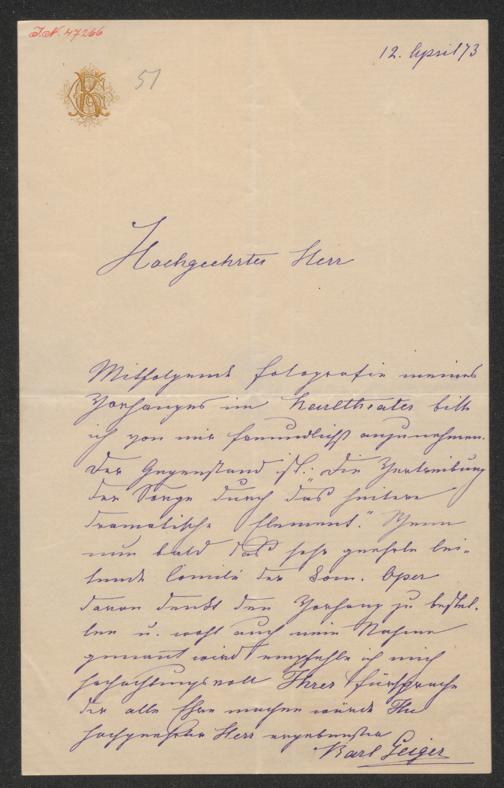 I.N. 47266
12. April 73
51
Hochgeehrter Herr
Mitfolgende Fotografie meines
Vorhanges im Karltheater bitte
ich von mir freundlichst anzunehmen.
Der Gegenstand ist: "Die Vertreibung
der Sorge durch das heitere
dramatische Element." Wenn
nun bald das sehr geehrte lei-
tende Comité der Kom. Oper
daran denkt den Vorhang zu bestel-
len u. wohl auch mein Nahme
genannt wird empfehle ich mich
hochachtungsvoll Ihrer Fürsprache
die alle Ehre machen würde Ihr
hochgeehrter Herr ergebenster
Karl Geiger